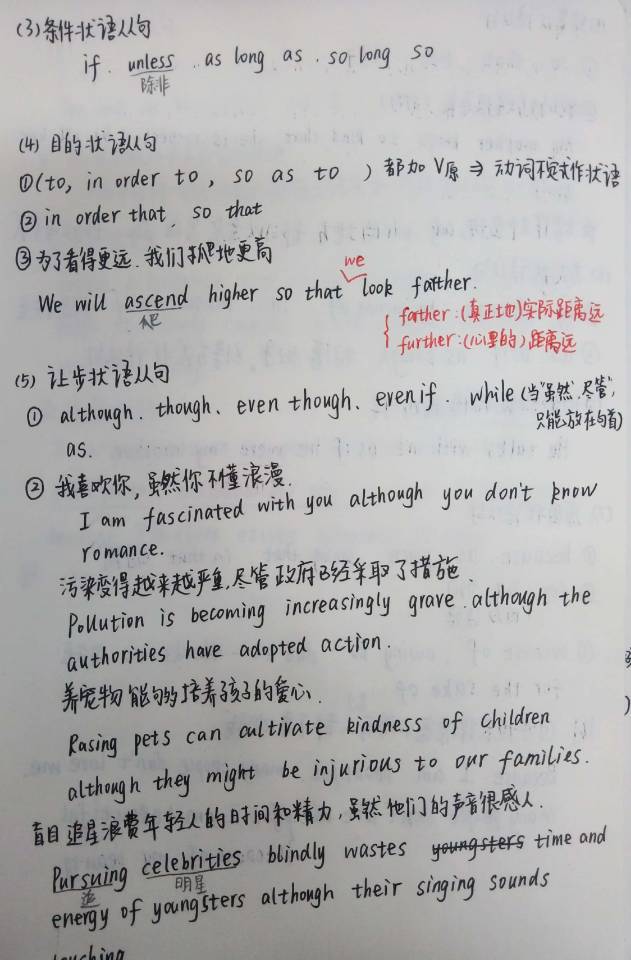 (3)条件状语从句
if. unless. as long as. so long so
除非
(4) 目的状语从句
①(to, in order to, so as to) 都加V原 ⇒ 动词不定式作状语
② in order that so that
③为了看得更远.我们抓地更高
we
We will ascend higher so that look farther.
爬
farther:(真正地)实际距离远
further:(心里的)距离远
(5) 让步状语从句
① although. though、even though、even if. while (当"虽然,尽管",
只能放在句首)
as.
② 我喜欢你,虽然你不懂浪漫.
I am fascinated with you although you don't know
romance.
污染变得越来越严重,尽管政府已经采取了措施.
Pollution is becoming increasingly grave. although the
authorities have adopted action.
养宠物能够培养孩子的爱心.
Rasing pets can cultivate kindness of children
although they might be injurious to our families.
盲目追星浪费年轻人的时间和精力,虽然他们的声音很感人.
Pursuing celebrities blindly wastes youngsters time and
追 明星
energy of youngsters although their singing sounds
touching